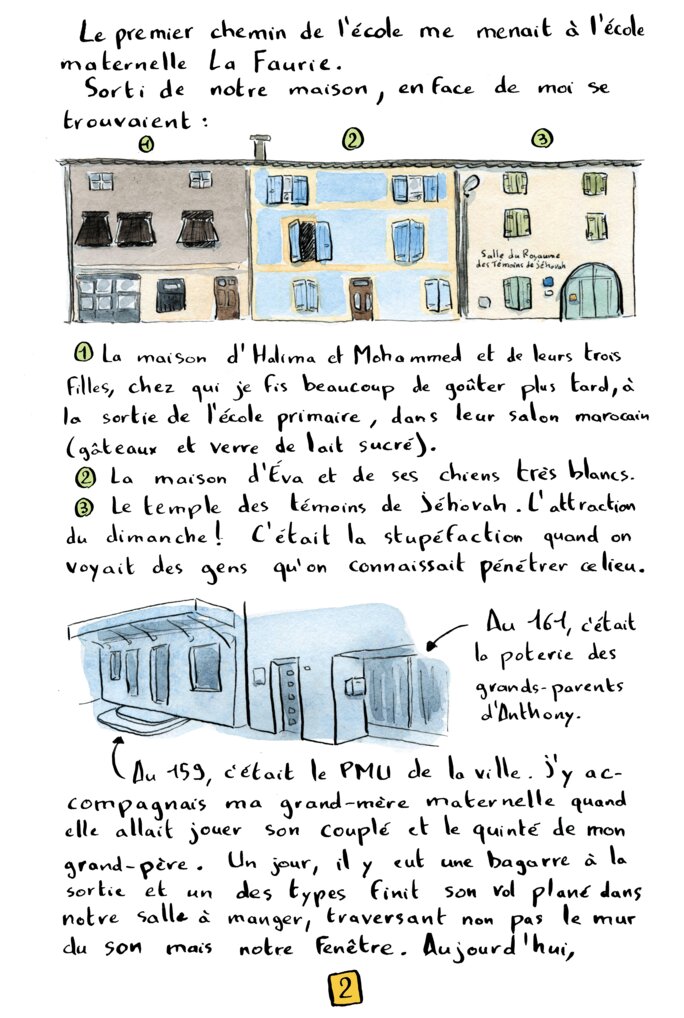 Le premier chemin de l'école me menait à l'école
maternelle La Faurie.
Sorti de notre maison, en face de moi se
trouvaient :
1 2 3
Salle du Royaume
des Témoins de Jéhovah
1 La maison d'Halima et Mohammed et de leurs trois
filles, chez qui je fis beaucoup de goûter plus tard, à
la sortie de l'école primaire, dans leur salon marocain
(gâteaux et verre de lait sucré).
2 La maison d'Éva et de ses chiens très blancs.
3 Le temple des témoins de Jéhovah. L'attraction
du dimanche! C'était la stupéfaction quand on
voyait des gens qu'on connaissait pénétrer ce lieu.
Au 161, c'était
la poterie des
grands-parents
d'Anthony.
Au 159, c'était le PMU de la ville. J'y ac-
compagnais ma grand-mère maternelle quand
elle allait jouer son couplé et le quinté de mon
grand-père. Un jour, il y eut une bagarre à la
sortie et un des types finit son vol plané dans
notre salle à manger, traversant non pas le mur
du son mais notre fenêtre. Aujourd'hui,
2